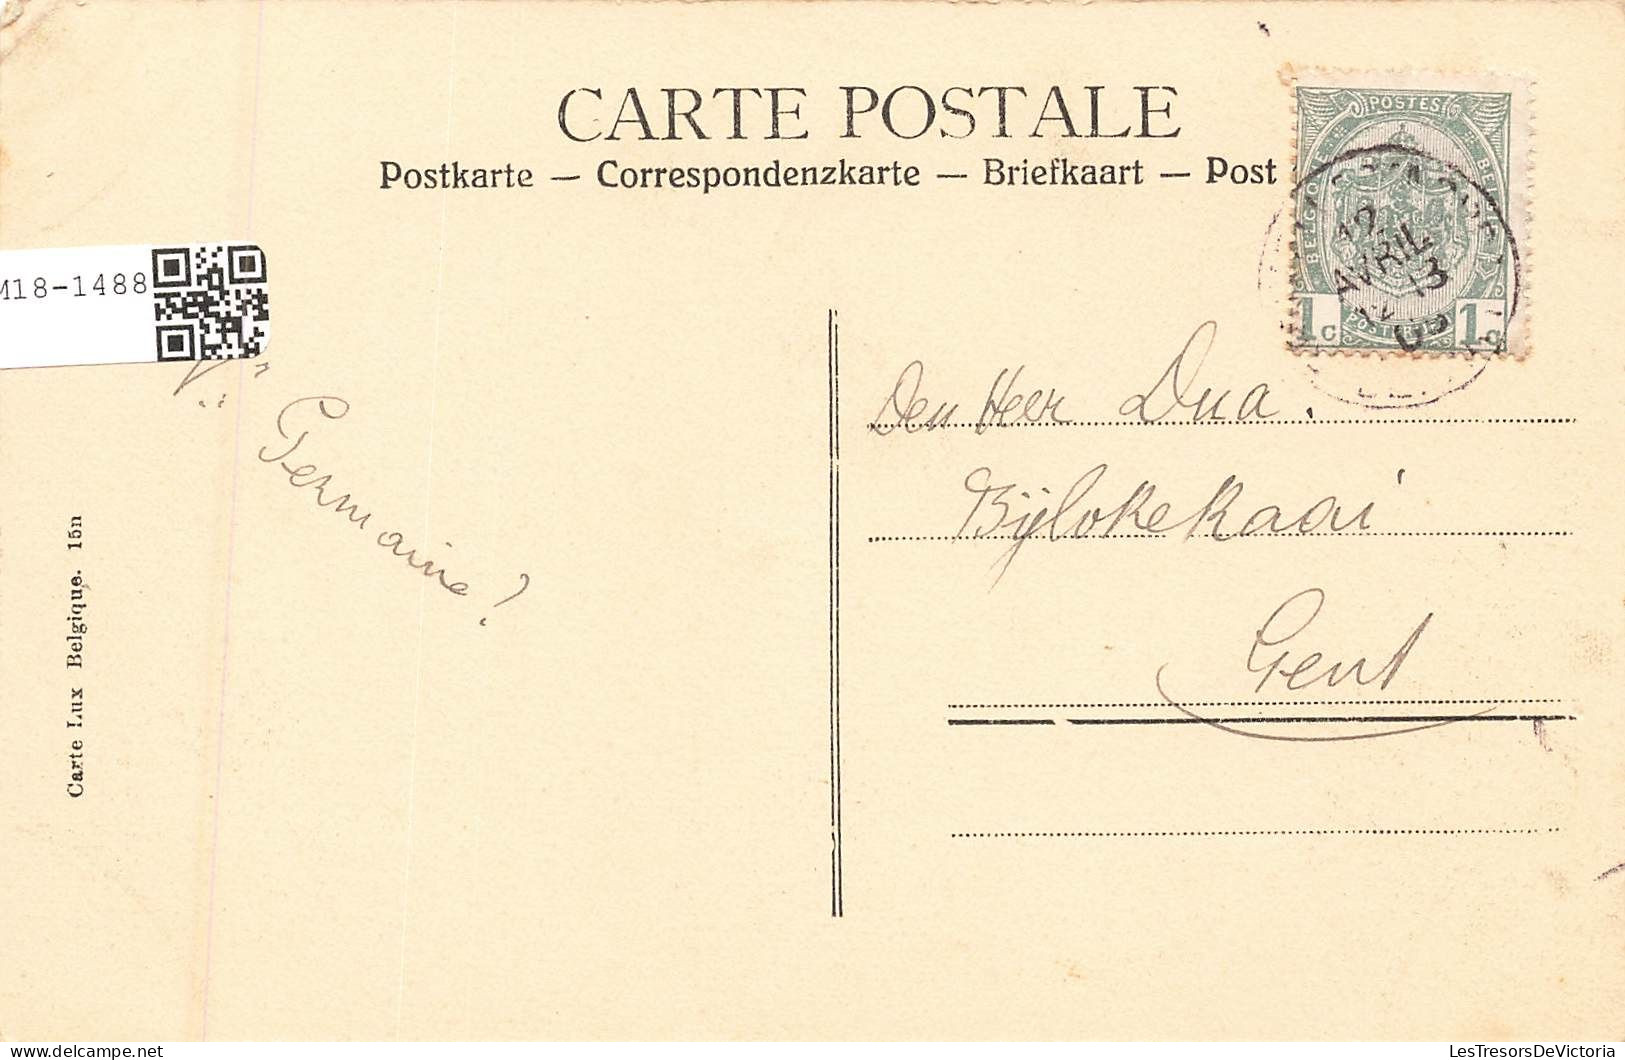 CARTE POSTALE
Postkarte — Correspondenzkarte — Briefkaart — Post
POSTES
BELGIQUE
1c 1c
12
AVRIL
13
M18-1488
Den Heer Dua.
Bijlokekaai
Gent
Germaine?
Carte Lux Belgique. 15n
LesTresorsDeVictoria
delcampe.net